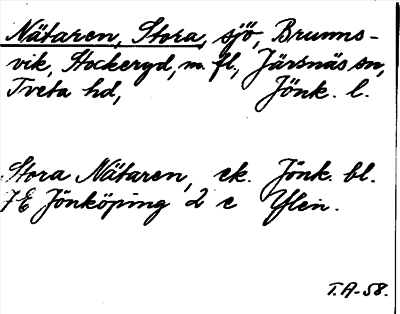 Nätaren, Stora, sjö, Brunns-
vik, Stockeryd, m. fl., Järsnäs sn,
Tveta hd, Jönk. l.
Stora Nätaren, ek. Jönk. bl.
7E Jönköping 2 c Ylen.
T.A-58.